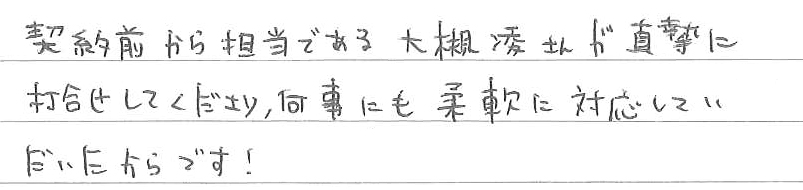 契約前から担当である大槻凌さんが真摯に
打合せしてくださり,何事にも柔軟に対応してい
だいたからです!